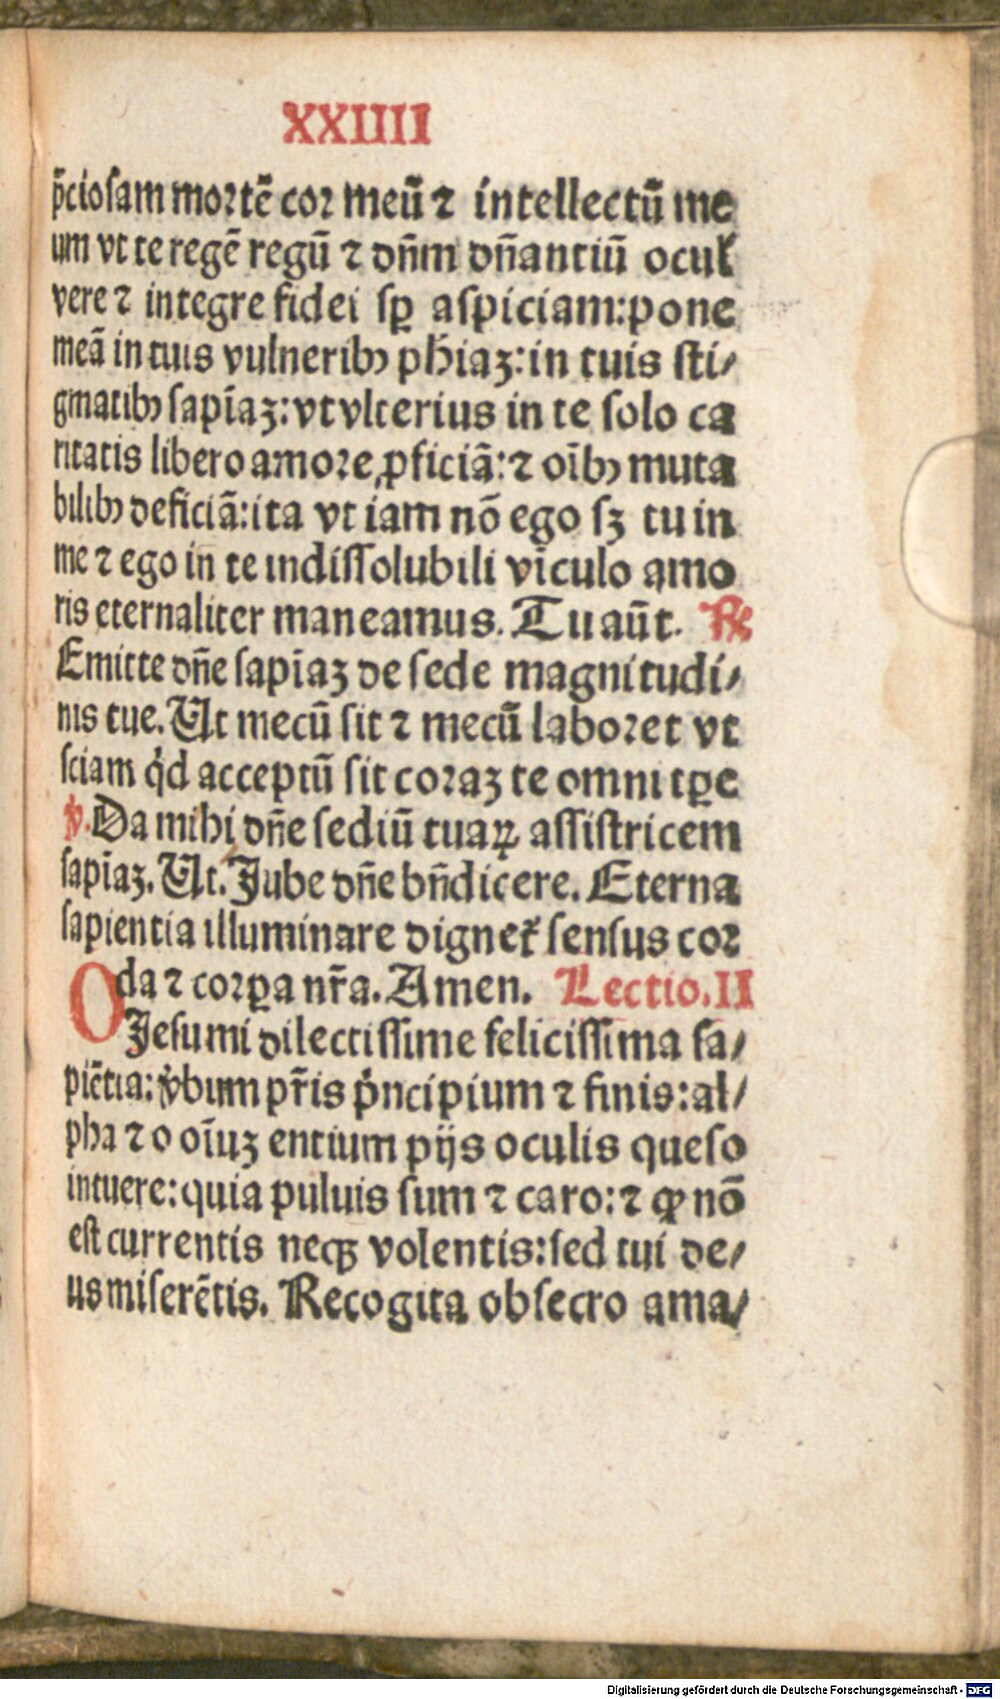 XXIIII
p̄ciosam mortē cor meū ⁊ intellectū me
um vt te regē regū ⁊ dn̄m dn̄antiū ocuł
vere ⁊ integre fidei sꝑ aspiciam: pone
meā in tuis vulneribꝰ ph̄iaꝫ: in tuis sti⸗
gmatibꝰ sapīaꝫ: vt vlterius in te solo ca
ritatis libero amore ꝓficiā: ⁊ oībꝰ muta
bilibꝰ deficiā: ita vt iam nō ego sꝫ tu in
me ⁊ ego in te indissolubili vīculo amo
ris eternaliter maneamus. Tu aūt. ℟
Emitte dn̄e sapīaꝫ de sede magnitudi⸗
nis tue. Ut mecū sit ⁊ mecū laboret vt
sciam qd̓ acceptū sit coraꝫ te omni tꝑe
℣. Da mihi dn̄e sediū tuaꝝ assistricem
sapīaꝫ. Ut. Jube dn̄e bn̄dicere. Eterna
sapientia illuminare dignet᷑ sensus cor
da ⁊ corꝑa nr̄a. Amen. Lectio. II
O Jesu mi dilectissime felicissima sa⸗
piētia: v̓bum pr̄is p̓ncipium ⁊ finis: al⸗
pha ⁊ o oīuꝫ entium pijs oculis queso
intuere: quia puluis sum ⁊ caro: ⁊ ꝙ nō
est currentis neqꝫ volentis: sed tui de⸗
us miserētis. Recogita obsecro ama⸗
Digitalisierung gefördert durch die Deutsche Forschungsgemeinschaft - DFG